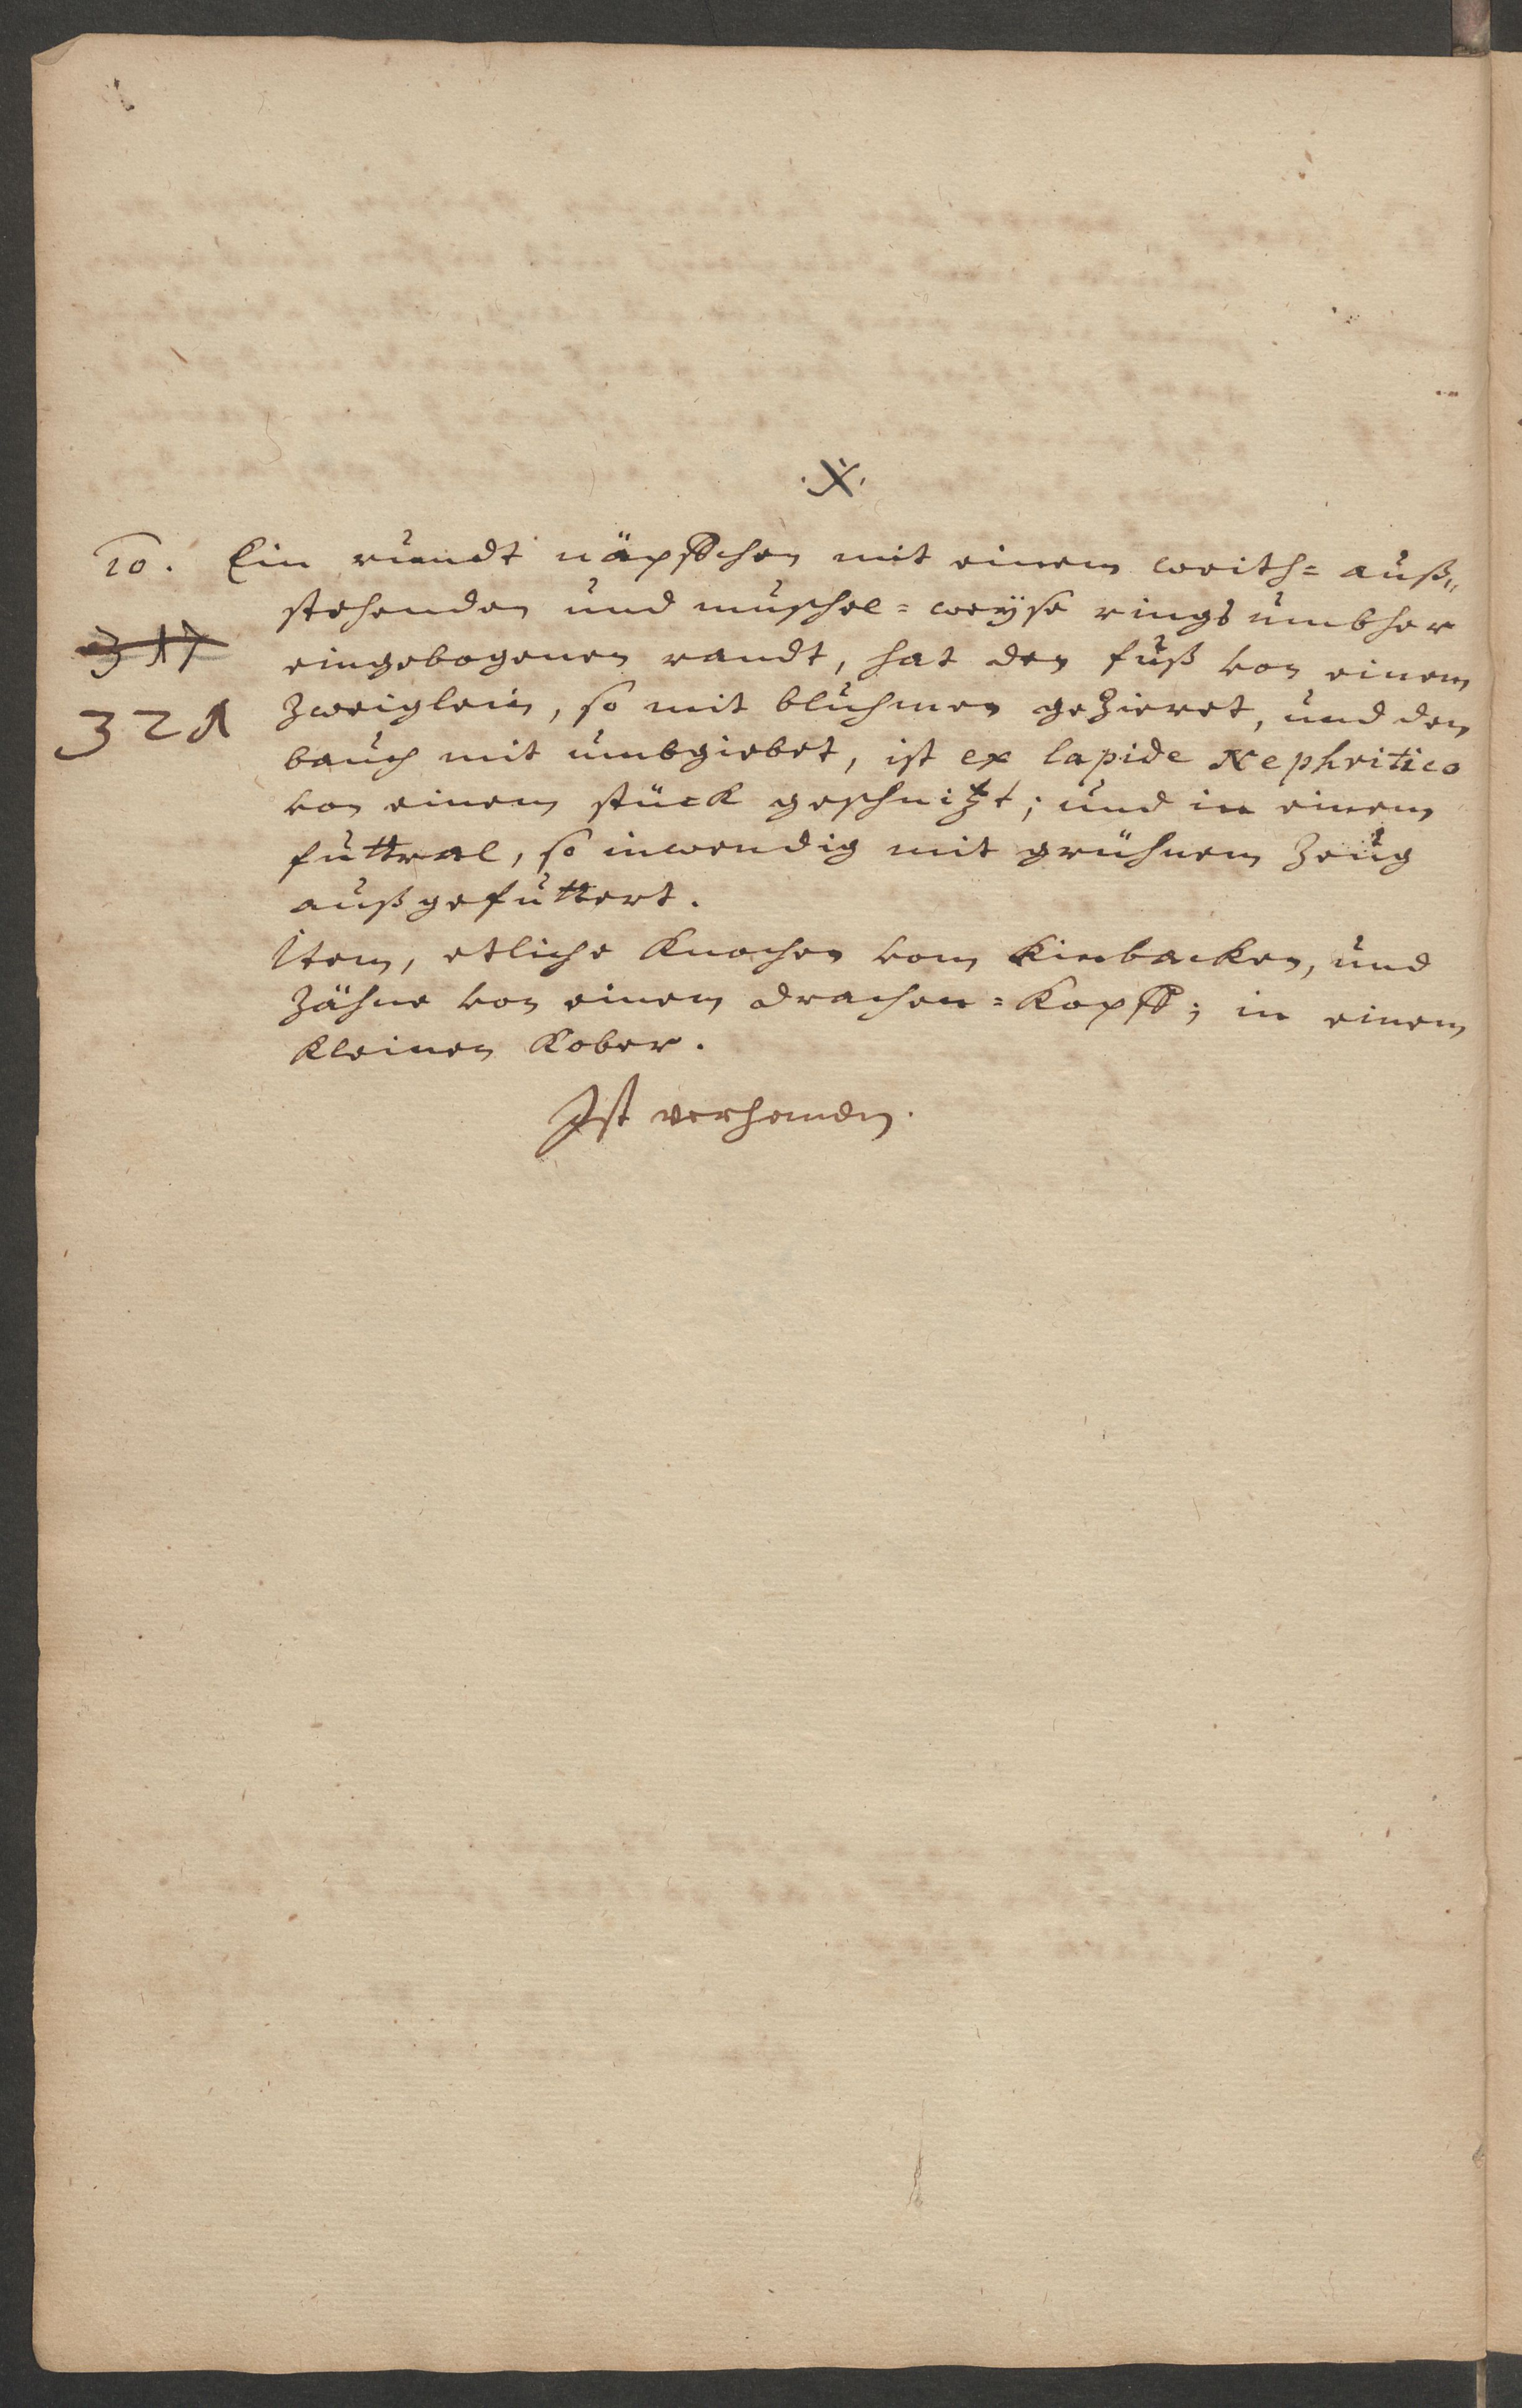 ·X·
10. Ein rundt näpffchen mit einem weith= auß„
stehenden und muschel=weyse rings umbher
3 17
eingebogenen randt, hat den fuß von einem
321
Zweiglein, so mit bluhmen geZieret, und den
bauch mit umbgiebet, ist ex lapide Nephritico
von einem stück geschnitzt; und in einem
futtral, so inwendig mit grühnem Zeug
außgefuttert.
Item, etliche Knochen vom Kinbacken, und
Zähne von einem drachen=Kopff; in einem
Kleinen Kober.
Ist verhanden.